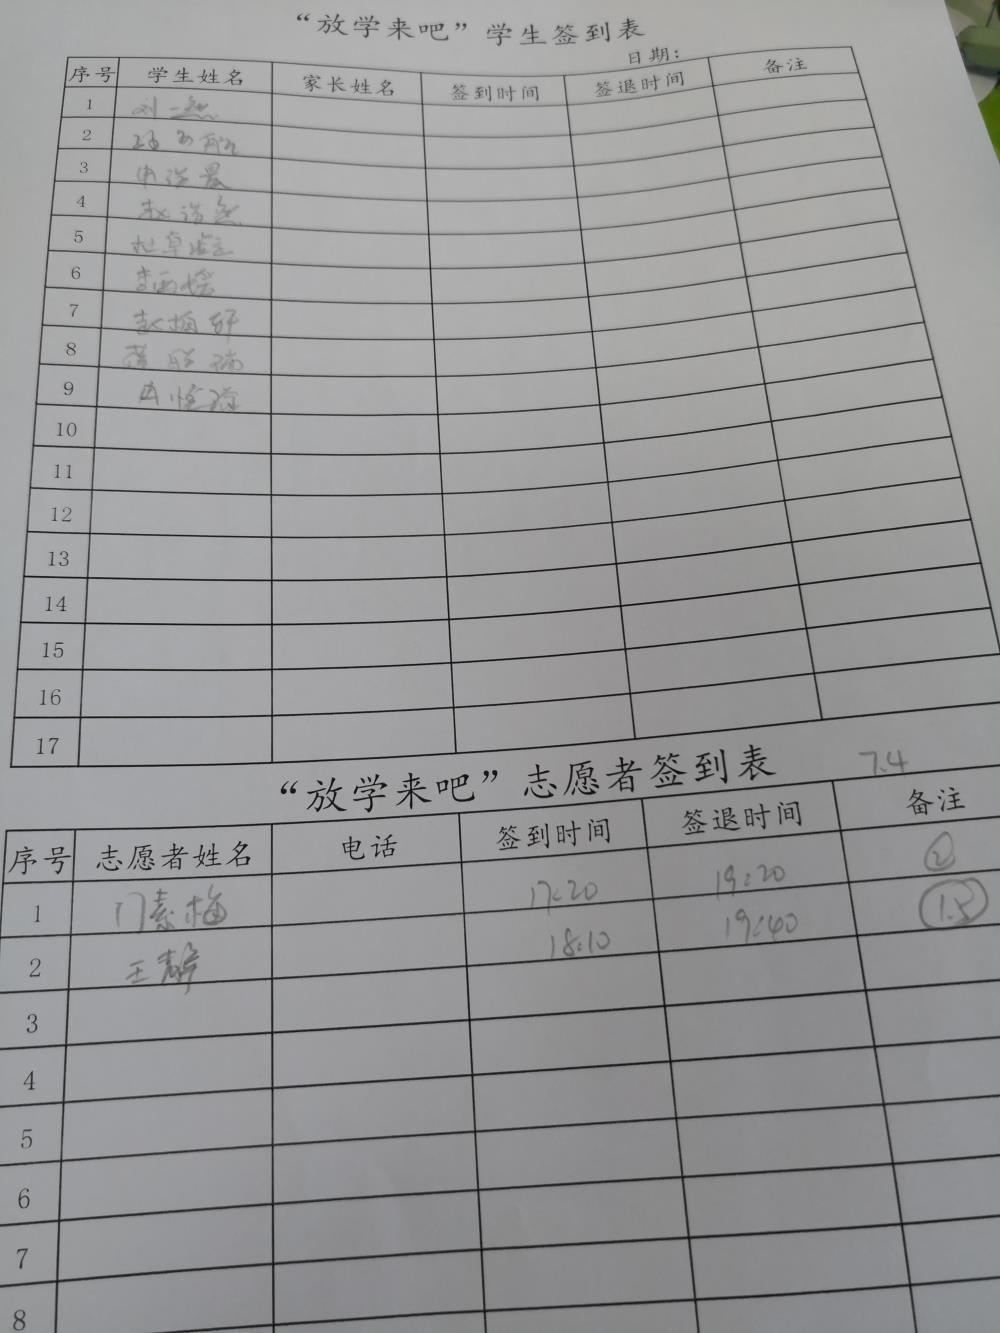 “放学来吧”学生签到表
日期：
序号 学生姓名 家长姓名 签到时间 签退时间 备注
1 刘一然
2
3 申浩晨
4 赵浩然
5
6 李雨嫣
7 赵梓轩
8
9
10
11
12
13
14
15
16
17
“放学来吧”志愿者签到表 7.4
序号 志愿者姓名 电话 签到时间 签退时间 备注
1 门素梅 17:20 19:20 2
2 王静 18:10 19:40 1.5
3
4
5
6
7
8